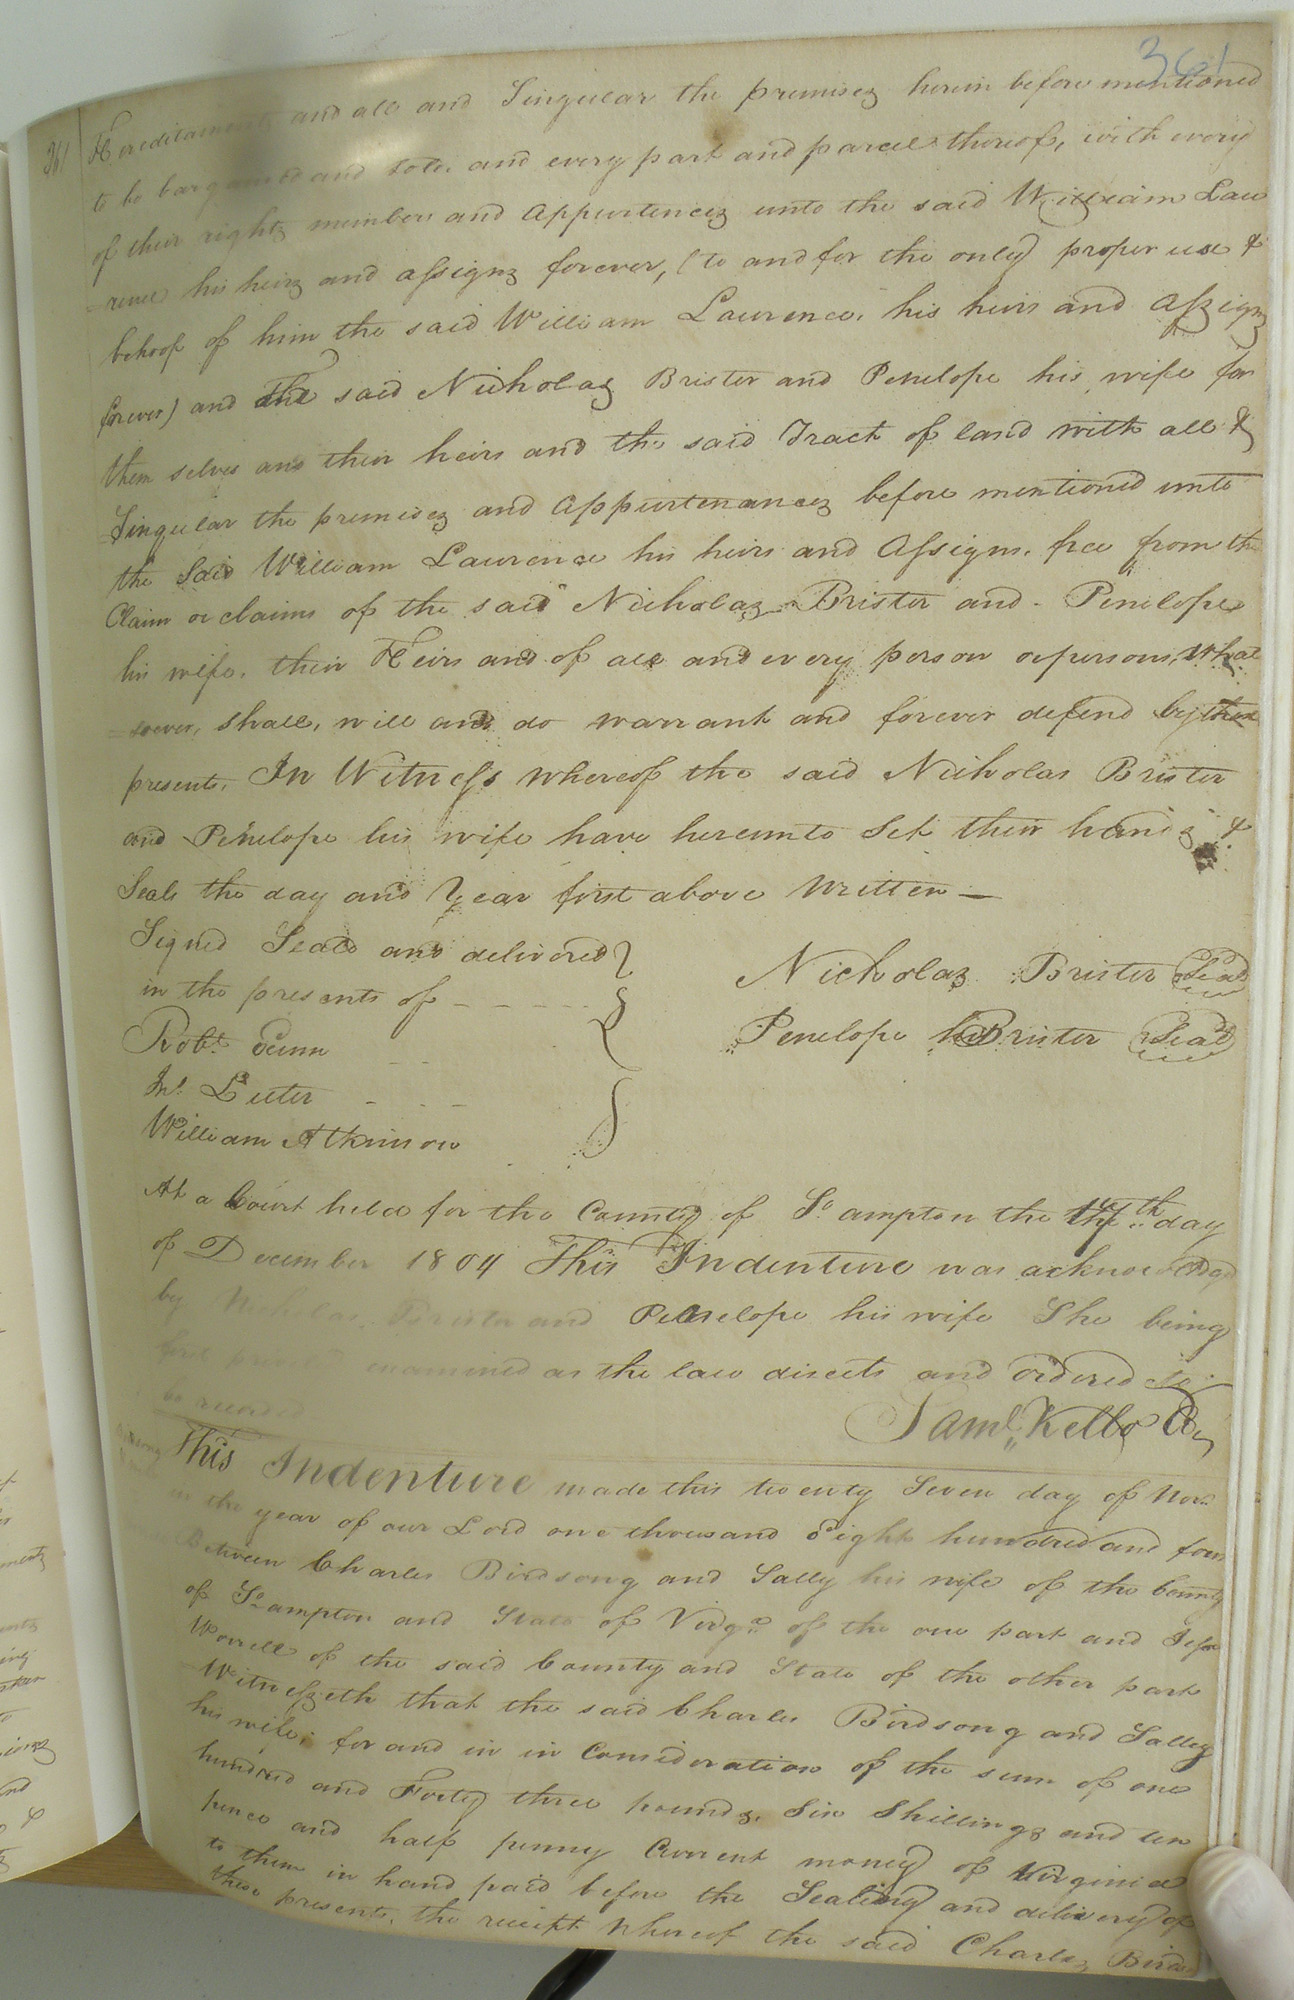 361
361
Hereditaments and all and Singular the premises herein before mentioned
to be bargained and sold, and every part and parcel thereof, with every
of their rights members and Appurtences unto the said William Law
=rence his heirs and assigns forever, (to and for the only proper use &
behoof of him the said William Lawrence, his heirs and Assigns
forever) and the said Nicholas Brister and Penelope his wife for
them selves and their heirs and the said Tract of land with all &
Singular the premises and Appurtenances before mentioned unto
the Said William Lawrence his heirs and Assigns, free from the
Claim or claims of the said Nicholas Brister and Penelope
his wife, their Heirs and of all and every person or persons, what
=soever, shall, will and do warrant and forever defend by these
presents. In Witness whereof the said Nicholas Brister
and Penelope his wife have hereunto Set their hands &
Seals the day and Year first above Written —
Signed Seald and delivered
in the presents of - - - - -
Nicholas Brister Seal
Penelope Brister Seal
Robt. Gunn
Jno. Luter
William Atkinson
At a Court held for the County of So. ampton the 17th. day
of December 1804 This Indenture was acknowledged
by Nicholas Brister and Penelope his wife She being
first privily examined as the law directs and ordered to
be recorded
Saml. Kello Cl.
This Indenture made this twenty Seven day of Nov.
in the year of our Lord one thousand Eight hundred and four
Between Charles Birdsong and Sally his wife of the County
of So. ampton and State of Virga. of the one part and Jesse
Worrell of the said County and State of the other part
Witnesseth that the said Charles Birdsong and Salley
his wife, for and in in Consideration of the sum of one
hundred and Forty three pounds, Six Shillings and ten
pence and half penny Current money of Virginia
to them in hand paid before the Sealing and delivery of
these presents, the receipt whereof the said Charles Birds